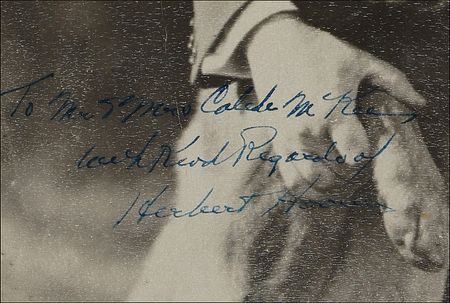 To Mr & Mrs Calede McKee,
with Kind Regards of
Herbert Hoover